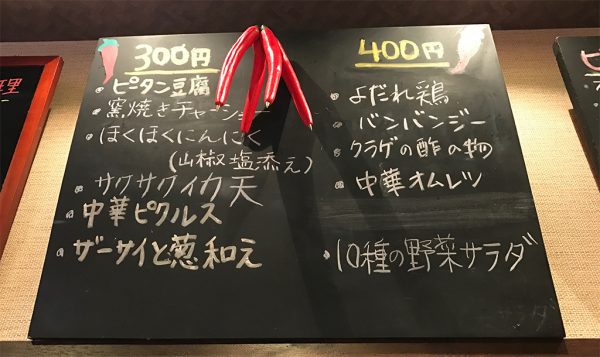 300円
・ピータン豆腐
・窯焼きチャーシュー
・ほくほくにんにく
(山椒塩添え)
・サクサクイカ天
・中華ピクルス
・ザーサイと葱和え
400円
・よだれ鶏
・バンバンジー
・クラゲの酢の物
・中華オムレツ
・10種の野菜サラダ
理